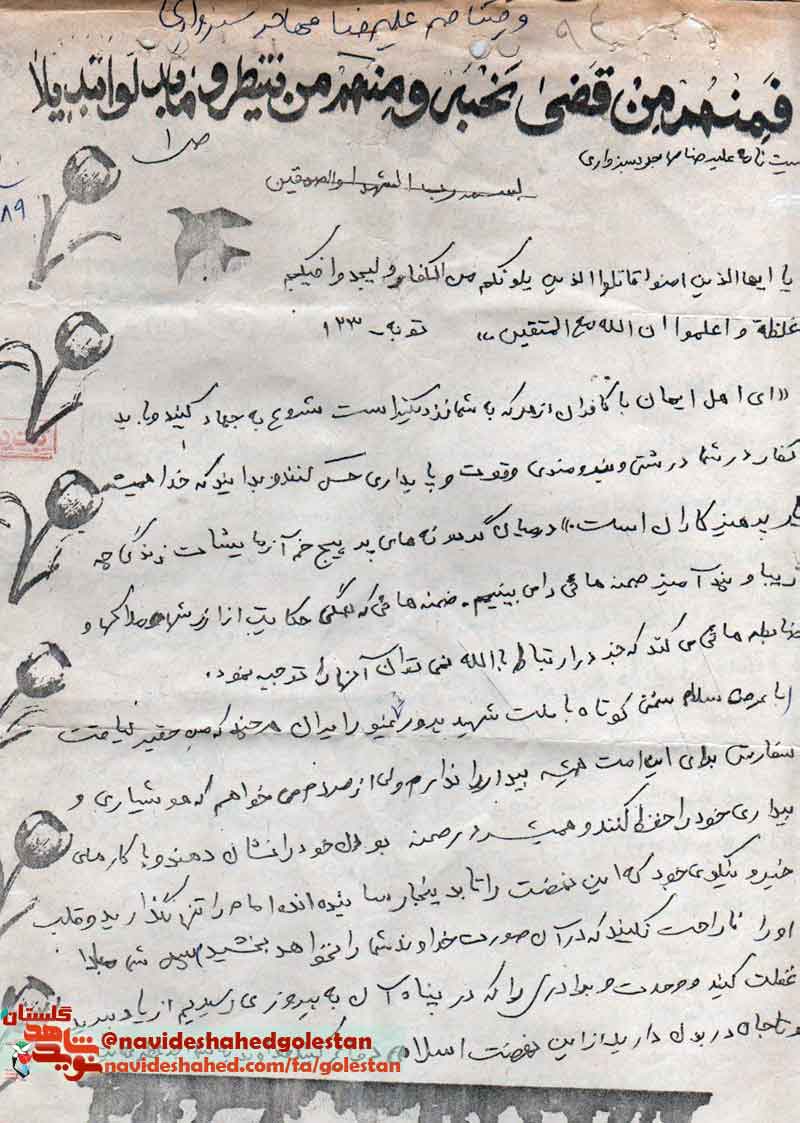 وصیتنامه علیرضا مهاجر سبزواری
فَمِنهُم مَن قَضیٰ نَحبَه و مِنهُم مَن ینتظر و ما بدلوا تبدیلا
ص ۱
وصیت نامه علیرضا مهاجر سبزواری
بسم رب الشهدا و الصدقین
۸۹
یا ایها الذین امنوا قاتلوا الذین یلونکم من الکفار ولیجدوا فیکم
غلظة و اعلموا ان الله مع المتقین» توبه - ۱۲۳
«ای اهل ایمان با کافران از هر که به شما نزدیکتر است شروع به جهاد کنید و باید
کفار در شما درشتی و نیرومندی و قوت و پایداری حس کنند و بدانید که خدا همیشه
یار پرهیزکاران است.» در میان گردونه های پر پیچ خم آزمایشات زندگی چه
زیبا و پند آمیز صحنه هائی را می بینیم. صحنه هائی که همگی حکایت از ارزشها و ملاکها و
ضابطه هائی می کند که جز در ارتباط با الله نمی توان آنها را توجیه نمود.
با عرض سلام سخنی کوتاه با ملت شهید پرور مینو را ایران هر چند که من حقیر لیاقت
سفارش برای این امت همیشه بیدار را ندارم ولی از مردم می خواهم که هوشیاری و
بیداری خود را حفظ کنند و همیشه در صحنه بودن خود را نشان دهند و با کارهای
خیر و نیکوی خود که این نهضت را تا بدینجا رسانیده اند امام را تنها نگذارید و قلب
او را ناراحت نکنید که در آن صورت خداوند شما را نخواهد بخشید شما مبادا
غفلت کنید و وحدت و برادری را که در پناه آن به پیروزی رسیدیم از یاد ببرید
و تا جان در بدن دارید از این نهضت اسلامی دفاع کنید
نوید شاهد گلستان
@navideshahedgolestan
navideshahed.com/fa/golestan